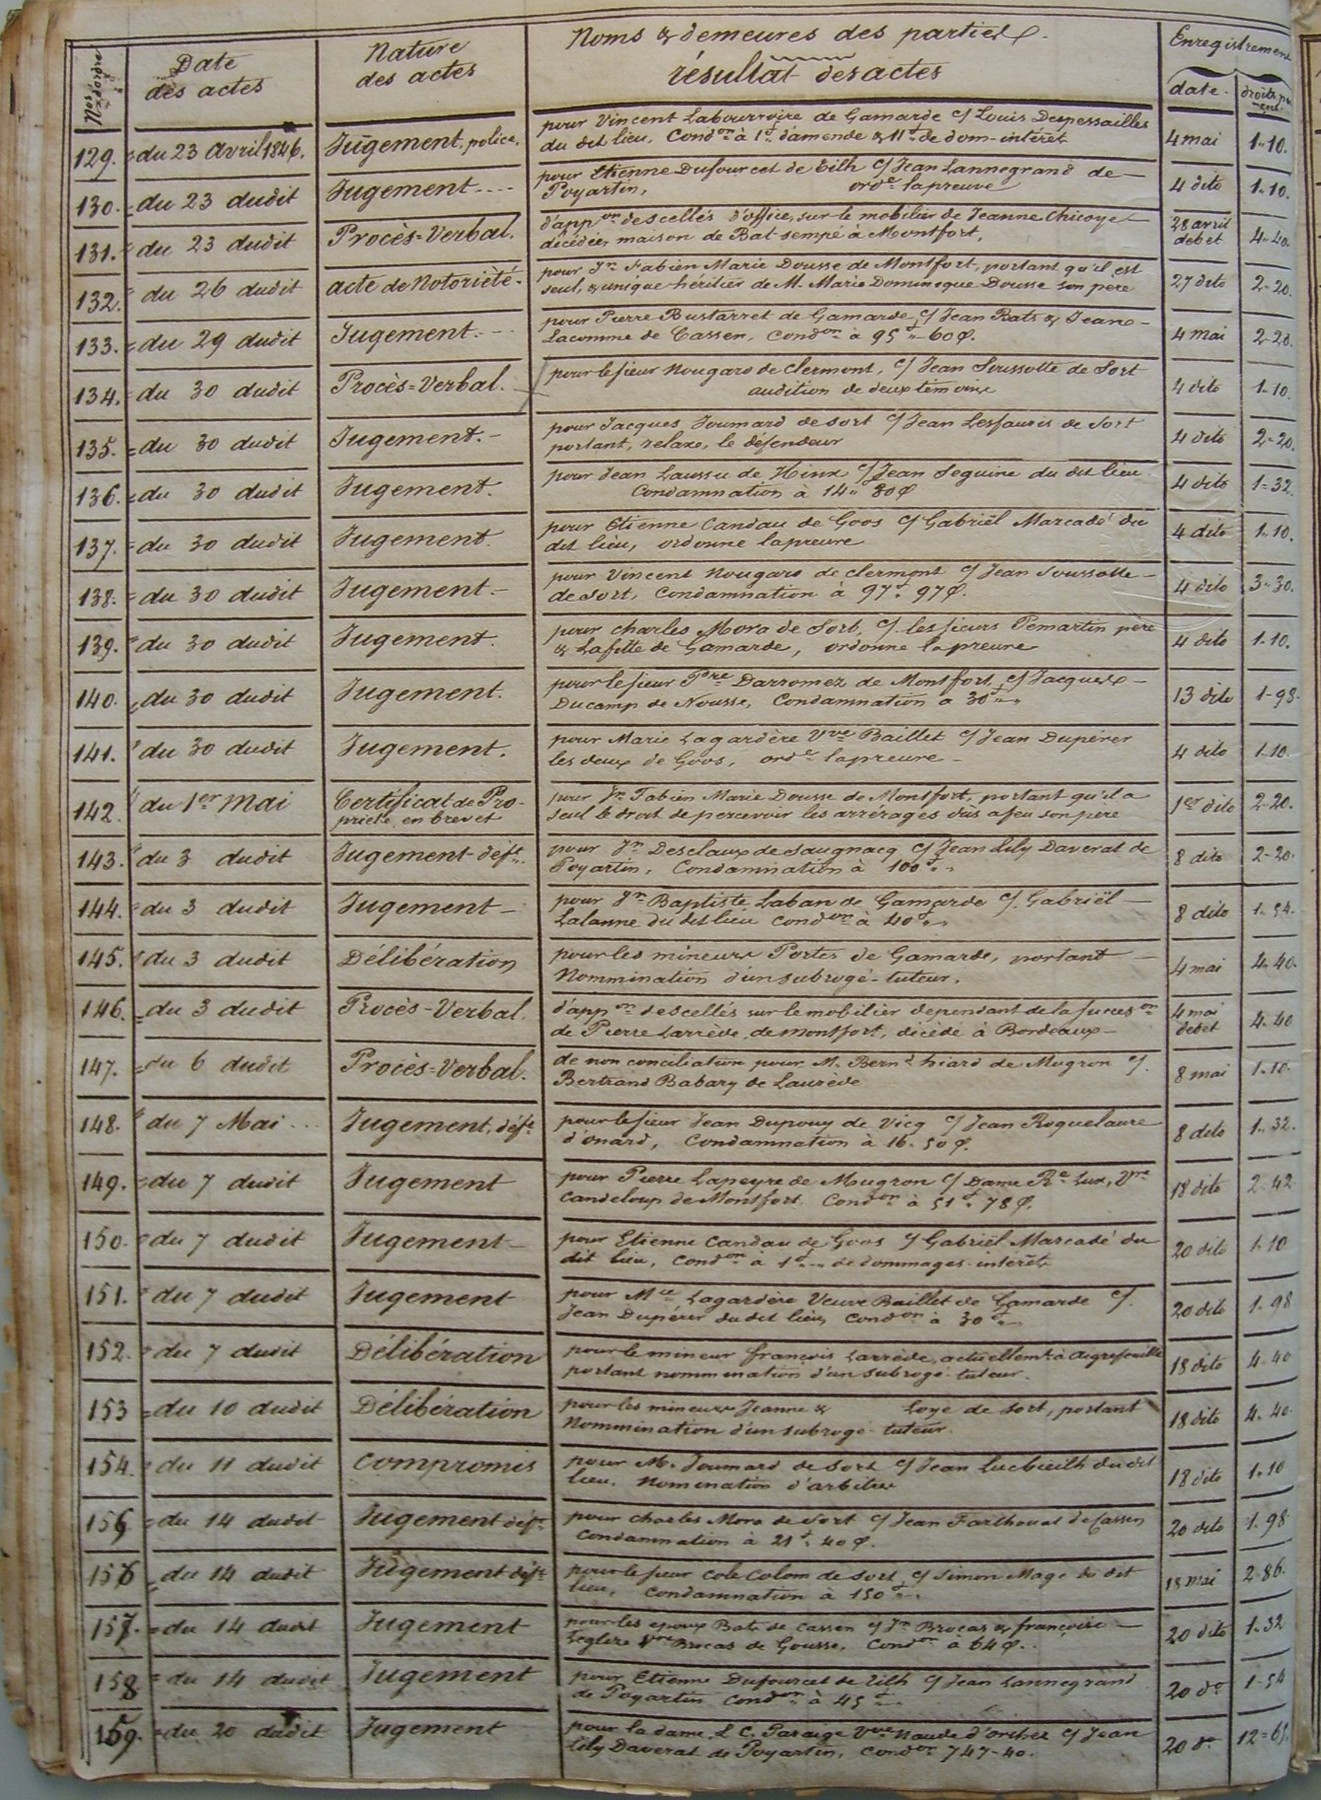 Nos d'ordre | Date des actes | Nature des actes | Noms & demeures des parties résultat des actes | Enregistrement date. | droits
129. du 23 avril 1846. Jugement, police. pour Vincent Labourroire de Gamarde c/ Louis Despessailles 4 mai 1-10.
du dit lieu, Condon à 1f d'amende & 11f de dom-intérêt
130. du 23 dudit Jugement pour Etienne Dufourcet de Tilh c/ Jean Lannegrand de 4 dito 1-10.
Poyartin, orde la preuve
131. du 23 dudit Procès=Verbal. d'appon des scellés d'office, sur le mobilier de Jeanne Chicoye 28 avril debet 4-40.
décédée, maison de Bat-sempé à Montfort,
132. du 26 dudit acte de Notoriété pour Jn Fabien Marie Dousse de Montfort, portant qu'il est 27 dito 2-20.
seul, & unique héritier de M. Marie Dominique Dousse son père
133. du 29 dudit Jugement. pour Pierre Bustarret de Gamarde c/ Jean Bats & Jean 4 mai 2-20.
Lacomme de Cassen, Condon à 95f-60c.
134. du 30 dudit Procès=Verbal. pour le sieur Nougaro de Clermont, c/ Jean Soussotte de Sort 4 dito 1-10.
audition de deux témoins
135. du 30 dudit Jugement. pour Jacques Joumard de Sort c/ Jean Lesfauris de Sort 4 dito 2-20.
portant, relaxe, le défendeur
136. du 30 dudit Jugement. pour Jean Laussu de Hinx c/ Jean Seguine du dit lieu 4 dito 1=32.
Condamnation à 14f 80c
137. du 30 dudit Jugement. pour Etienne Candau de Goos c/ Gabriël Marcadé du 4 dito 1-10.
dit lieu, ordonne la preuve
138. du 30 dudit Jugement pour Vincent Nougaro de Clermont c/ Jean Soussotte 4 dito 3-30.
de Sort, Condamnation à 97f. 97c.
139. du 30 dudit Jugement. pour Charles Mora de Sort, c/ les sieurs Pemartin père 4 dito 1-10.
& Lafitte de Gamarde, ordonne la preuve
140. du 30 dudit Jugement. pour le sieur Pre Darromez de Montfort c/ Jacques 13 dito 1-98.
Ducamp de Nousse, Condamnation à 30f
141. du 30 dudit Jugement. pour Marie Lagardère Vve Baillet c/ Jean Dupérer 4 dito 1-10.
les deux de Goos, orde la preuve
142 du 1er Mai Certificat de Pro- pour Jn Fabien Marie Dousse de Montfort, portant qu'il a 1er dito 2-20.
priété en brevet seul le droit de percevoir les arrérages dûs à feu son père
143. du 3 dudit Jugement déft pour Jn Desclaux de Saugnacq c/ Jean Lily Daverat de 8 dito 2-20.
Poyartin, Condamnation à 100f
144. du 3 dudit Jugement pour Jn Baptiste Laban de Gamarde c/ Gabriël 8 dito 1-54.
Lalanne du dit lieu Condon à 40f
145. du 3 dudit Délibération pour les mineurs Portes de Gamarde, portant 4 mai 4-40.
Nommination d'un subrogé-tuteur.
146. du 3 dudit Procès-Verbal. d'appon des scellés sur le mobilier dépendant de la succeson 4 mai debet 4-40
de Pierre Larrède, de Montfort, décédé à Bordeaux
147. du 6 dudit Procès=Verbal. de non conciliation pour M. Bernd hiard de Mugron c/. 8 mai 1-10.
Bertrand Babary de Laurède
148. du 7 Mai Jugement, déft pour le sieur Jean Dupouy de Vicq c/ Jean Roquelaure 8 dito 1-32.
d'onard, Condamnation à 16-50c.
149. du 7 dudit Jugement pour Pierre Lapeyre de Mugron c/ Dame Re Lux, Vve 18 dito 2-42
Candeloup de Montfort Condon à 51f. 78c.
150. du 7 dudit Jugement pour Etienne Candau de Goos c/ Gabriël Marcadé du 20 dito 1-10
dit lieu, Condon à 1f de dommages-intérêts
151. du 7 dudit Jugement pour Mie Lagardère Veuve Baillet de Gamarde c/. 20 dito 1-98
Jean Dupérer du dit lieu, Condon à 30f
152. du 7 dudit Délibération pour le mineur françois Larrède, actuellemt à Aigrefeuille 18 dito 4-40
portant nommination d'un subrogé-tuteur.
153 du 10 dudit Délibération pour les mineurs Jeanne & Loye de Sort, portant 18 dito 4-40.
Nommination d'un subrogé-tuteur.
154. du 11 dudit Compromis pour M. Joumard de Sort c/ Jean Lucbieilh du dit 18 dito 1-10
lieu. Nomination d'arbitres
155 du 14 dudit Jugement déft pour Charles Mora de Sort c/ Jean Farthouat de Cassen 20 dito 1-98
Condamnation à 21f. 40c.
156 du 14 dudit Jugement déft pour le sieur Cole Colom de Sort c/ Simon Mage du dit 18 mai 2-86.
lieu, Condamnation à 150f
157. du 14 dudit Jugement pour les époux Bats de Cassen c/ Jn Brocas & françoise 20 dito 1-32
Leglere Vve Brocas de Gousse, Condon à 64c.
158 du 14 dudit Jugement pour Etienne Dufourcet de Tilh c/ Jean Lannegrand 20 do 1-54
de Poyartin Condon à 45f
159. du 20 dudit Jugement pour la dame L C. Paraige Vve Naude d'orches c/ Jean 20 do 12=65.
Lily Daverat de Poyartin, Condon 747-40.